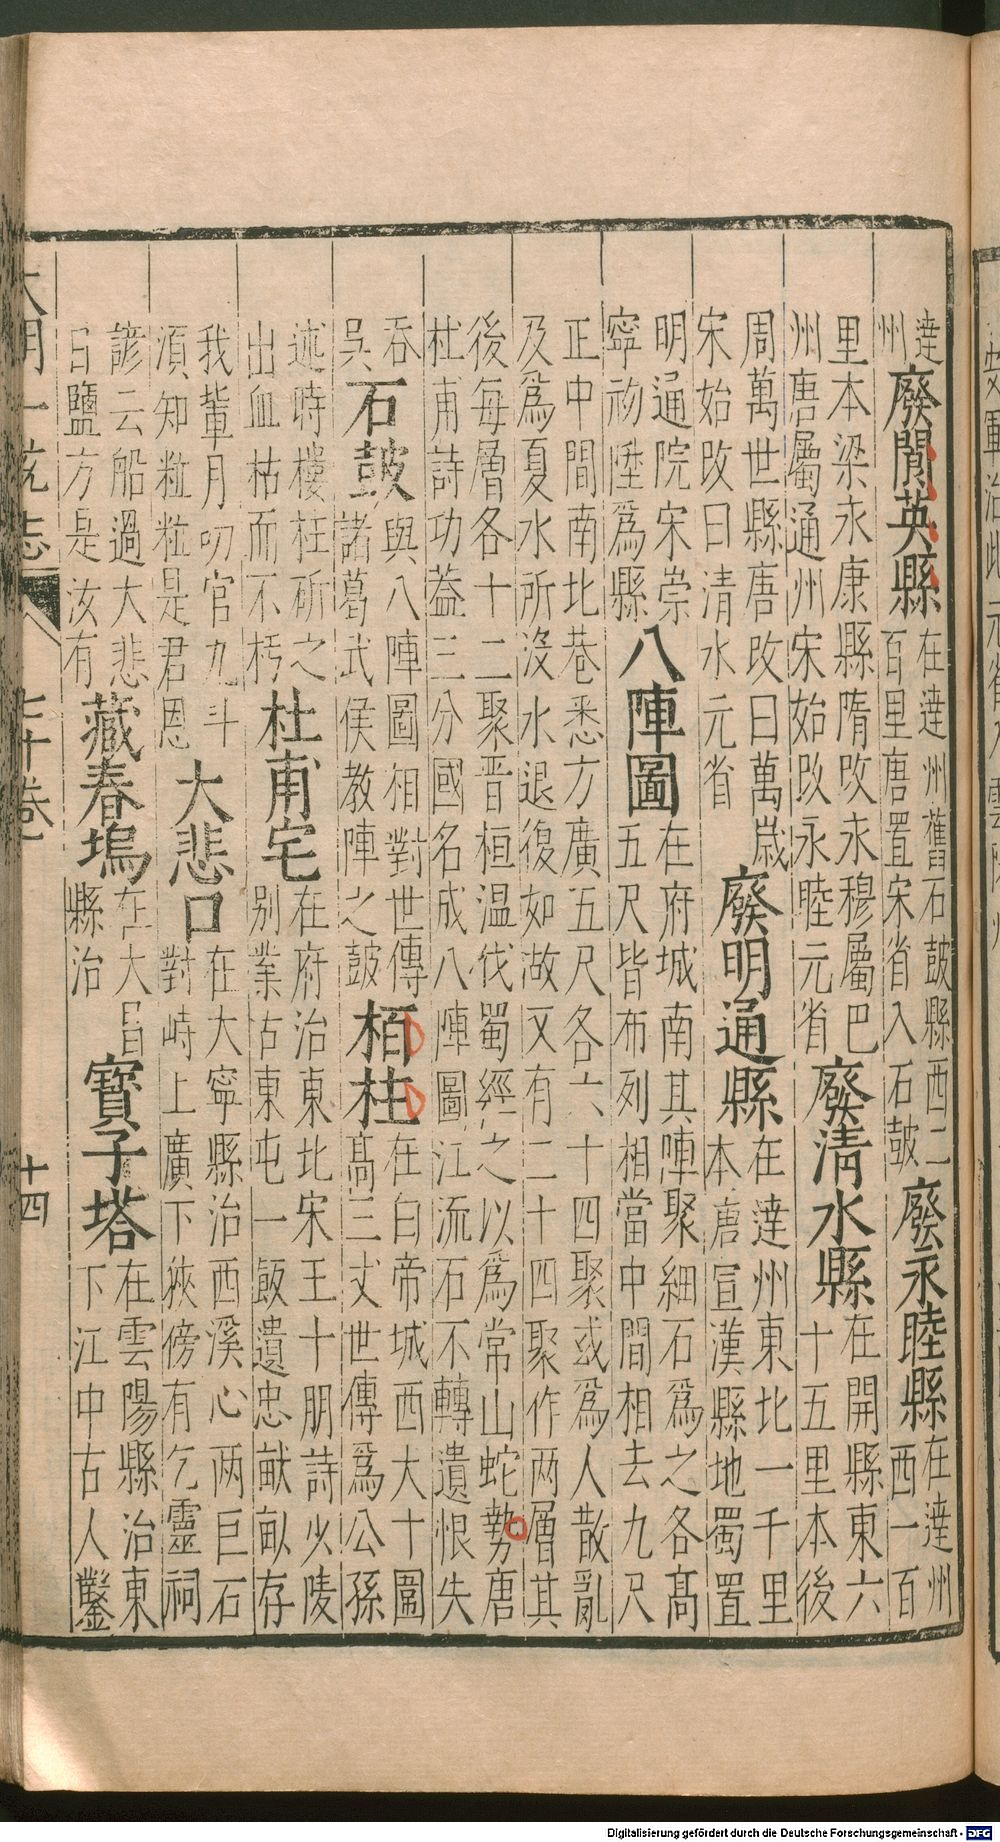 達
州
廢閬英縣
在達州舊石鼓縣西二
百里唐置宋省入石鼓
廢永睦縣
在達州
西一百
里本梁永康縣隋改永穆屬巴
州唐屬通州宋始改永睦元省
廢清水縣
在開縣東六
十五里本後
周萬世縣唐改曰萬歲
宋始改曰清水元省
廢明通縣
在達州東北一千里
本唐宣漢縣地蜀置
明通院宋崇
寧初陞爲縣
八陣圖
在府城南其陣聚細石爲之各高
五尺皆布列相當中間相去九尺
正中間南北巷悉方廣五尺各六十四聚或爲人散亂
及爲夏水所没水退復如故又有二十四聚作两層其
後每層各十二聚晋桓温伐蜀經之以爲常山蛇勢唐
杜甫詩功蓋三分國名成八陣圖江流石不轉遺恨失
吞
吳
石鼓
與八陣圖相對世傳
諸葛武侯教陣之鼓
栢柱
在白帝城西大十圍
高三丈世傳爲公孫
述時樓柱斫之
出血枯而不朽
杜甫宅
在府治東北宋王十朋詩少陵
别業古東屯一飯遺忠畎畝存
我輩月叨官九斗
須知粒粒是君恩
大悲口
在大寧縣治西溪心两巨石
對峙上廣下狹傍有乞靈祠
諺云船過大悲
口鹽方是汝有
藏春塢
在大昌
縣治
寶子塔
在雲陽縣治東
下江中古人鑿
大明一統志 七十卷 十四
Digitalisierung gefördert durch die Deutsche Forschungsgemeinschaft - DFG